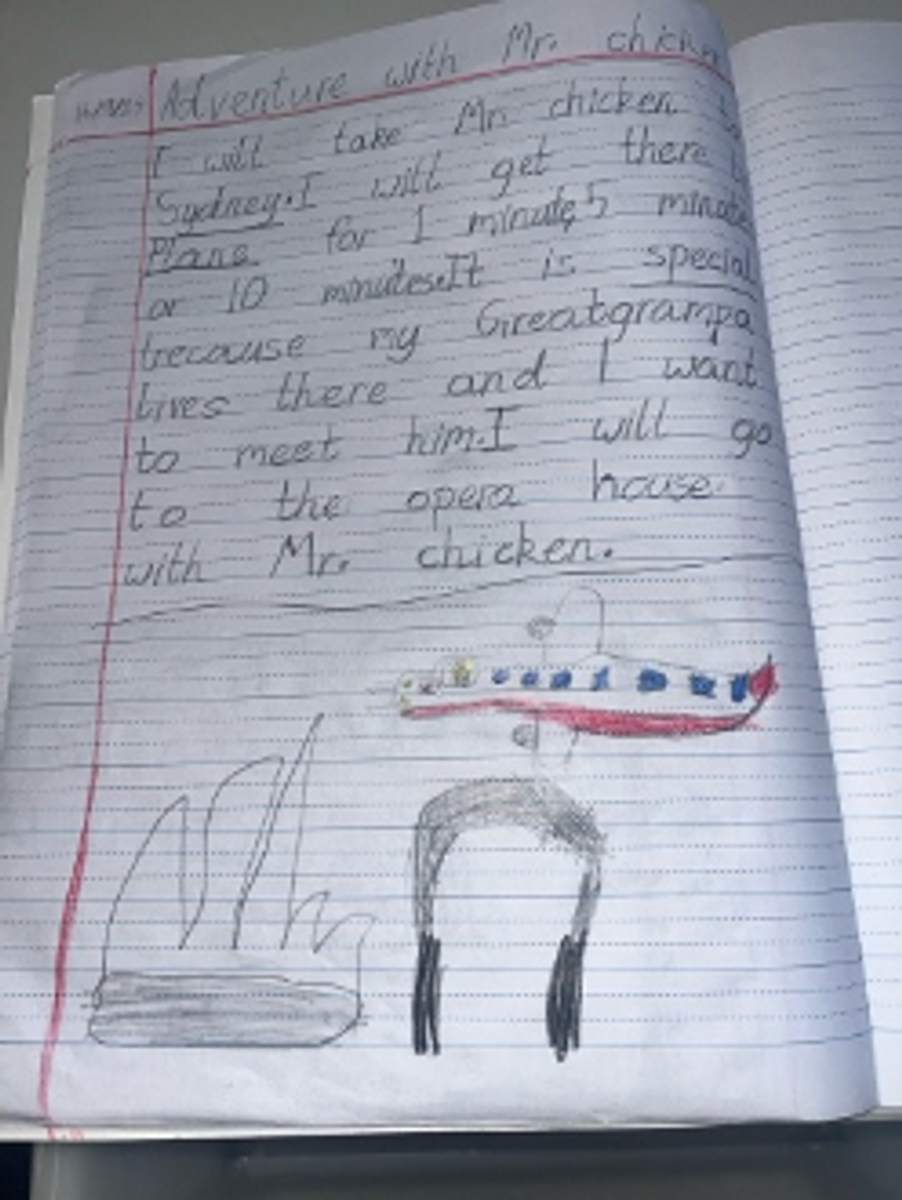 Adventure with Mr. chicken
I will take Mr. chicken
Sydney. I will get there
Plane for 1 minute, 5 minute
or 10 minutes. It is special
because my Greatgrampa
lives there and I want
to meet him. I will go
to the opera house
with Mr. chicken.